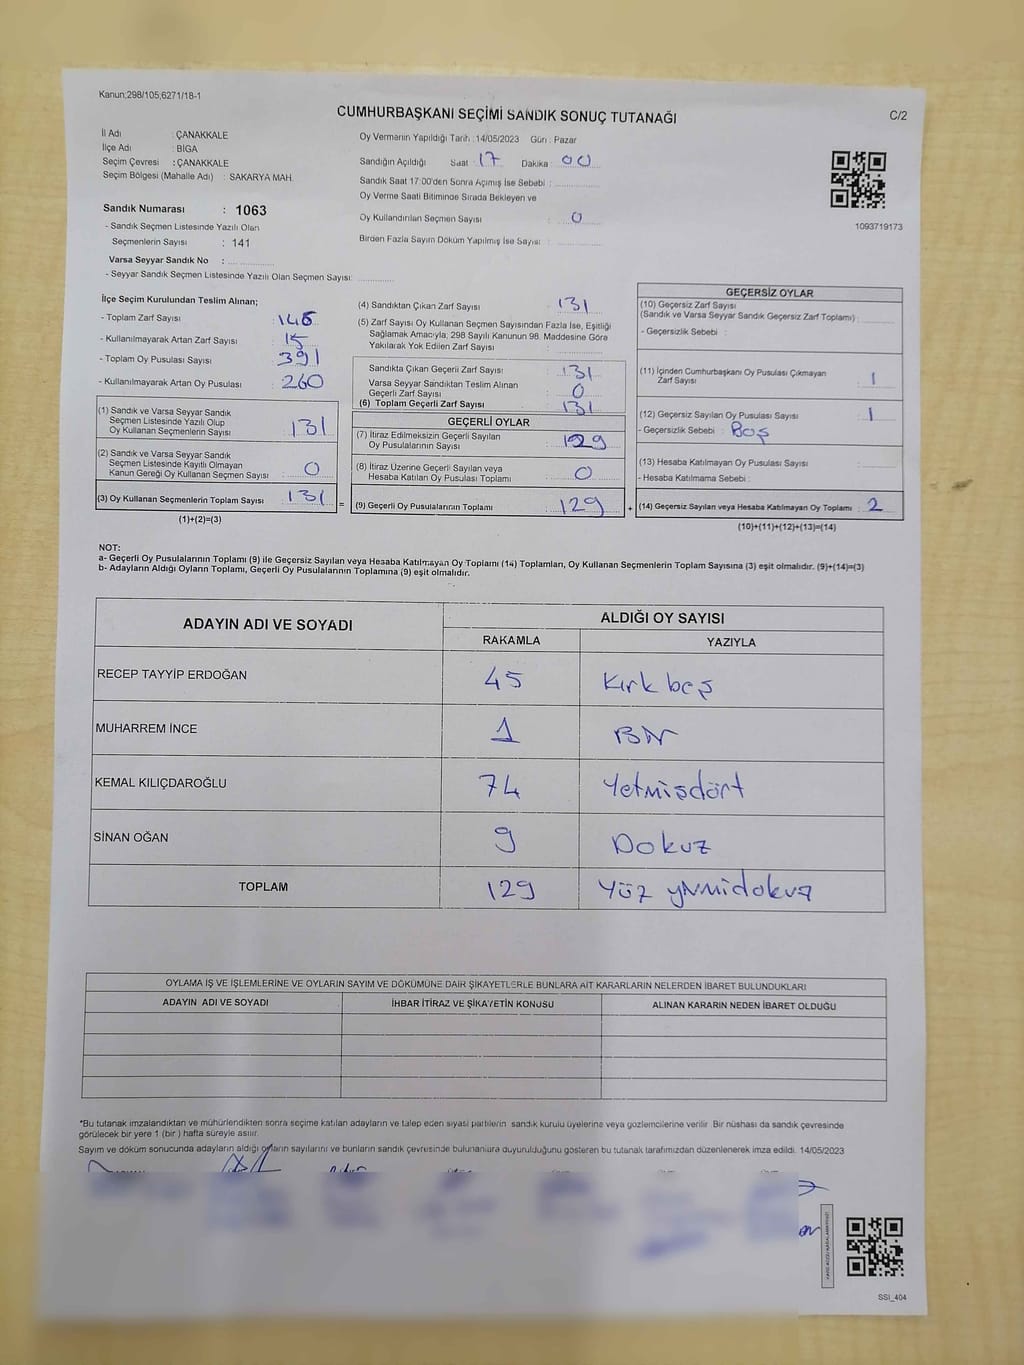 Kanun;298/105;6271/18-1
CUMHURBAŞKANI SEÇİMİ SANDIK SONUÇ TUTANAĞI
C/2
İl Adı : ÇANAKKALE
İlçe Adı : BİGA
Seçim Çevresi : ÇANAKKALE
Seçim Bölgesi (Mahalle Adı) : SAKARYA MAH.
Sandık Numarası : 1063
- Sandık Seçmen Listesinde Yazılı Olan
Seçmenlerin Sayısı : 141
Varsa Seyyar Sandık No :
- Seyyar Sandık Seçmen Listesinde Yazılı Olan Seçmen Sayısı:
Oy Vermenin Yapıldığı Tarih : 14/05/2023 Gün : Pazar
Sandığın Açıldığı Saat : 17 Dakika : 00
Sandık Saat 17:00'den Sonra Açımış İse Sebebi :
Oy Verme Saati Bitiminde Sırada Bekleyen ve
Oy Kullandırılan Seçmen Sayısı : 0
Birden Fazla Sayım Döküm Yapılmış İse Sayısı :
1093719173
İlçe Seçim Kurulundan Teslim Alınan;
- Toplam Zarf Sayısı : 146
- Kullanılmayarak Artan Zarf Sayısı : 15
- Toplam Oy Pusulası Sayısı : 391
- Kullanılmayarak Artan Oy Pusulası : 260
(1) Sandık ve Varsa Seyyar Sandık
Seçmen Listesinde Yazılı Olup
Oy Kullanan Seçmenlerin Sayısı : 131
(2) Sandık ve Varsa Seyyar Sandık
Seçmen Listesinde Kayıtlı Olmayan
Kanun Gereği Oy Kullanan Seçmen Sayısı : 0
(3) Oy Kullanan Seçmenlerin Toplam Sayısı : 131 =
(1)+(2)=(3)
(4) Sandıktan Çıkan Zarf Sayısı : 131
(5) Zarf Sayısı Oy Kullanan Seçmen Sayısından Fazla İse, Eşitliği
Sağlamak Amacıyla, 298 Sayılı Kanunun 98. Maddesine Göre
Yakılarak Yok Edilen Zarf Sayısı :
Sandıkta Çıkan Geçerli Zarf Sayısı : 131
Varsa Seyyar Sandıktan Teslim Alınan
Geçerli Zarf Sayısı : 0
(6) Toplam Geçerli Zarf Sayısı : 131
GEÇERLİ OYLAR
(7) İtiraz Edilmeksizin Geçerli Sayılan
Oy Pusulalarının Sayısı : 129
(8) İtiraz Üzerine Geçerli Sayılan veya
Hesaba Katılan Oy Pusulası Toplamı : 0
(9) Geçerli Oy Pusulalarının Toplamı : 129 +
GEÇERSİZ OYLAR
(10) Geçersiz Zarf Sayısı
(Sandık ve Varsa Seyyar Sandık Geçersiz Zarf Toplamı) :
- Geçersizlik Sebebi :
(11) İçinden Cumhurbaşkanı Oy Pusulası Çıkmayan
Zarf Sayısı : 1
(12) Geçersiz Sayılan Oy Pusulası Sayısı : 1
- Geçersizlik Sebebi : Boş
(13) Hesaba Katılmayan Oy Pusulası Sayısı :
- Hesaba Katılmama Sebebi :
(14) Geçersiz Sayılan veya Hesaba Katılmayan Oy Toplamı : 2
(10)+(11)+(12)+(13)=(14)
NOT:
a- Geçerli Oy Pusulalarının Toplamı (9) ile Geçersiz Sayılan veya Hesaba Katılmayan Oy Toplamı (14) Toplamları, Oy Kullanan Seçmenlerin Toplam Sayısına (3) eşit olmalıdır. (9)+(14)=(3)
b- Adayların Aldığı Oyların Toplamı, Geçerli Oy Pusulalarının Toplamına (9) eşit olmalıdır.
ADAYIN ADI VE SOYADI ALDIĞI OY SAYISI
RAKAMLA YAZIYLA
RECEP TAYYİP ERDOĞAN 45 Kırk beş
MUHARREM İNCE 1 Bir
KEMAL KILIÇDAROĞLU 74 Yetmişdört
SİNAN OĞAN 9 Dokuz
TOPLAM 129 Yüz yirmidokuz
OYLAMA İŞ VE İŞLEMLERİNE VE OYLARIN SAYIM VE DÖKÜMÜNE DAİR ŞİKAYETLERLE BUNLARA AİT KARARLARIN NELERDEN İBARET BULUNDUKLARI
ADAYIN ADI VE SOYADI İHBAR İTİRAZ VE ŞİKAYETİN KONUSU ALINAN KARARIN NEDEN İBARET OLDUĞU
*Bu tutanak imzalandıktan ve mühürlendikten sonra seçime katılan adayların ve talep eden siyasi partilerin sandık kurulu üyelerine veya gözlemcilerine verilir. Bir nüshası da sandık çevresinde
görülecek bir yere 1 (bir) hafta süreyle asılır.
Sayım ve döküm sonucunda adayların aldığı oyların sayılarını ve bunların sandık çevresinde bulunanlara duyurulduğunu gösteren bu tutanak tarafımızdan düzenlenerek imza edildi. 14/05/2023
SSI_404